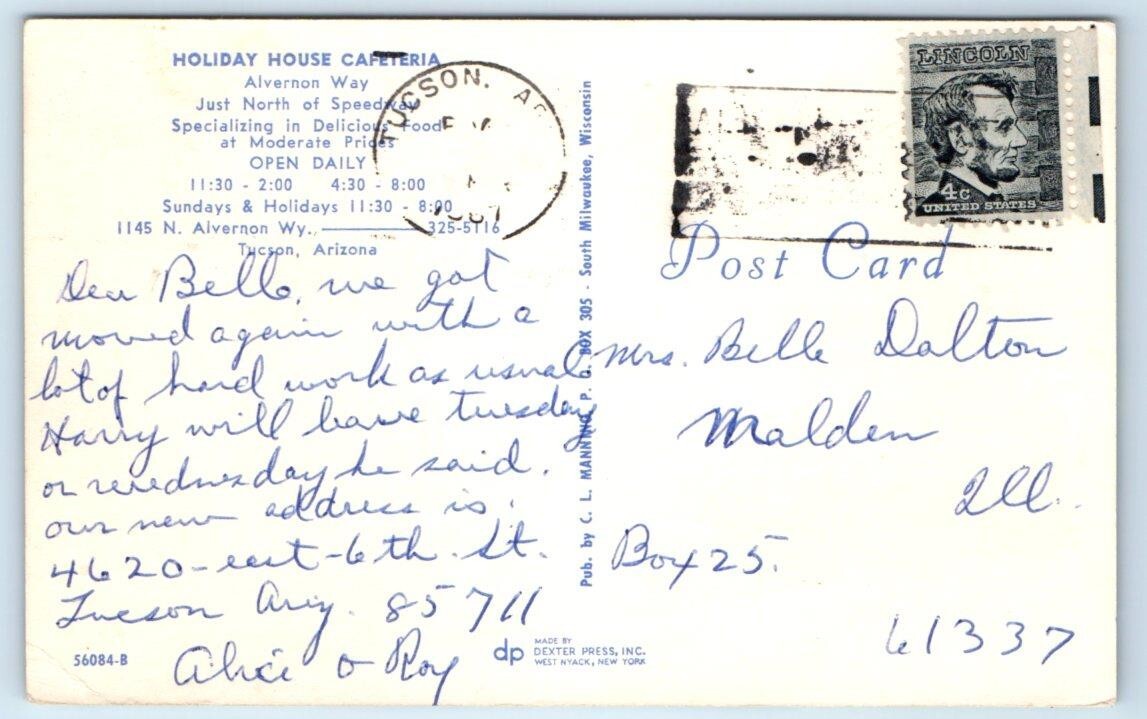 HOLIDAY HOUSE CAFETERIA
Alvernon Way
Just North of Speedway
Specializing in Delicious Food
at Moderate Prices
OPEN DAILY
11:30 - 2:00 4:30 - 8:00
Sundays & Holidays 11:30 - 8:00
1145 N. Alvernon Wy. 325-5116
Tucson, Arizona
Dear Belle, we got
moved again with a
lot of hard work as usual
Harry will leave tuesday
or wednesday he said.
our new address is.
4620-east-6th. St.
Tucson Ariz. 85711
Alice & Roy
56084-B
TUCSON.
LINCOLN
4c
UNITED STATES
Pub. by C. L. MANNING P. O. BOX 305 - South Milwaukee, Wisconsin
Post Card
Mrs. Belle Dalton
Malden
Ill.
Box 25.
61337
dp
MADE BY
DEXTER PRESS, INC.
WEST NYACK, NEW YORK